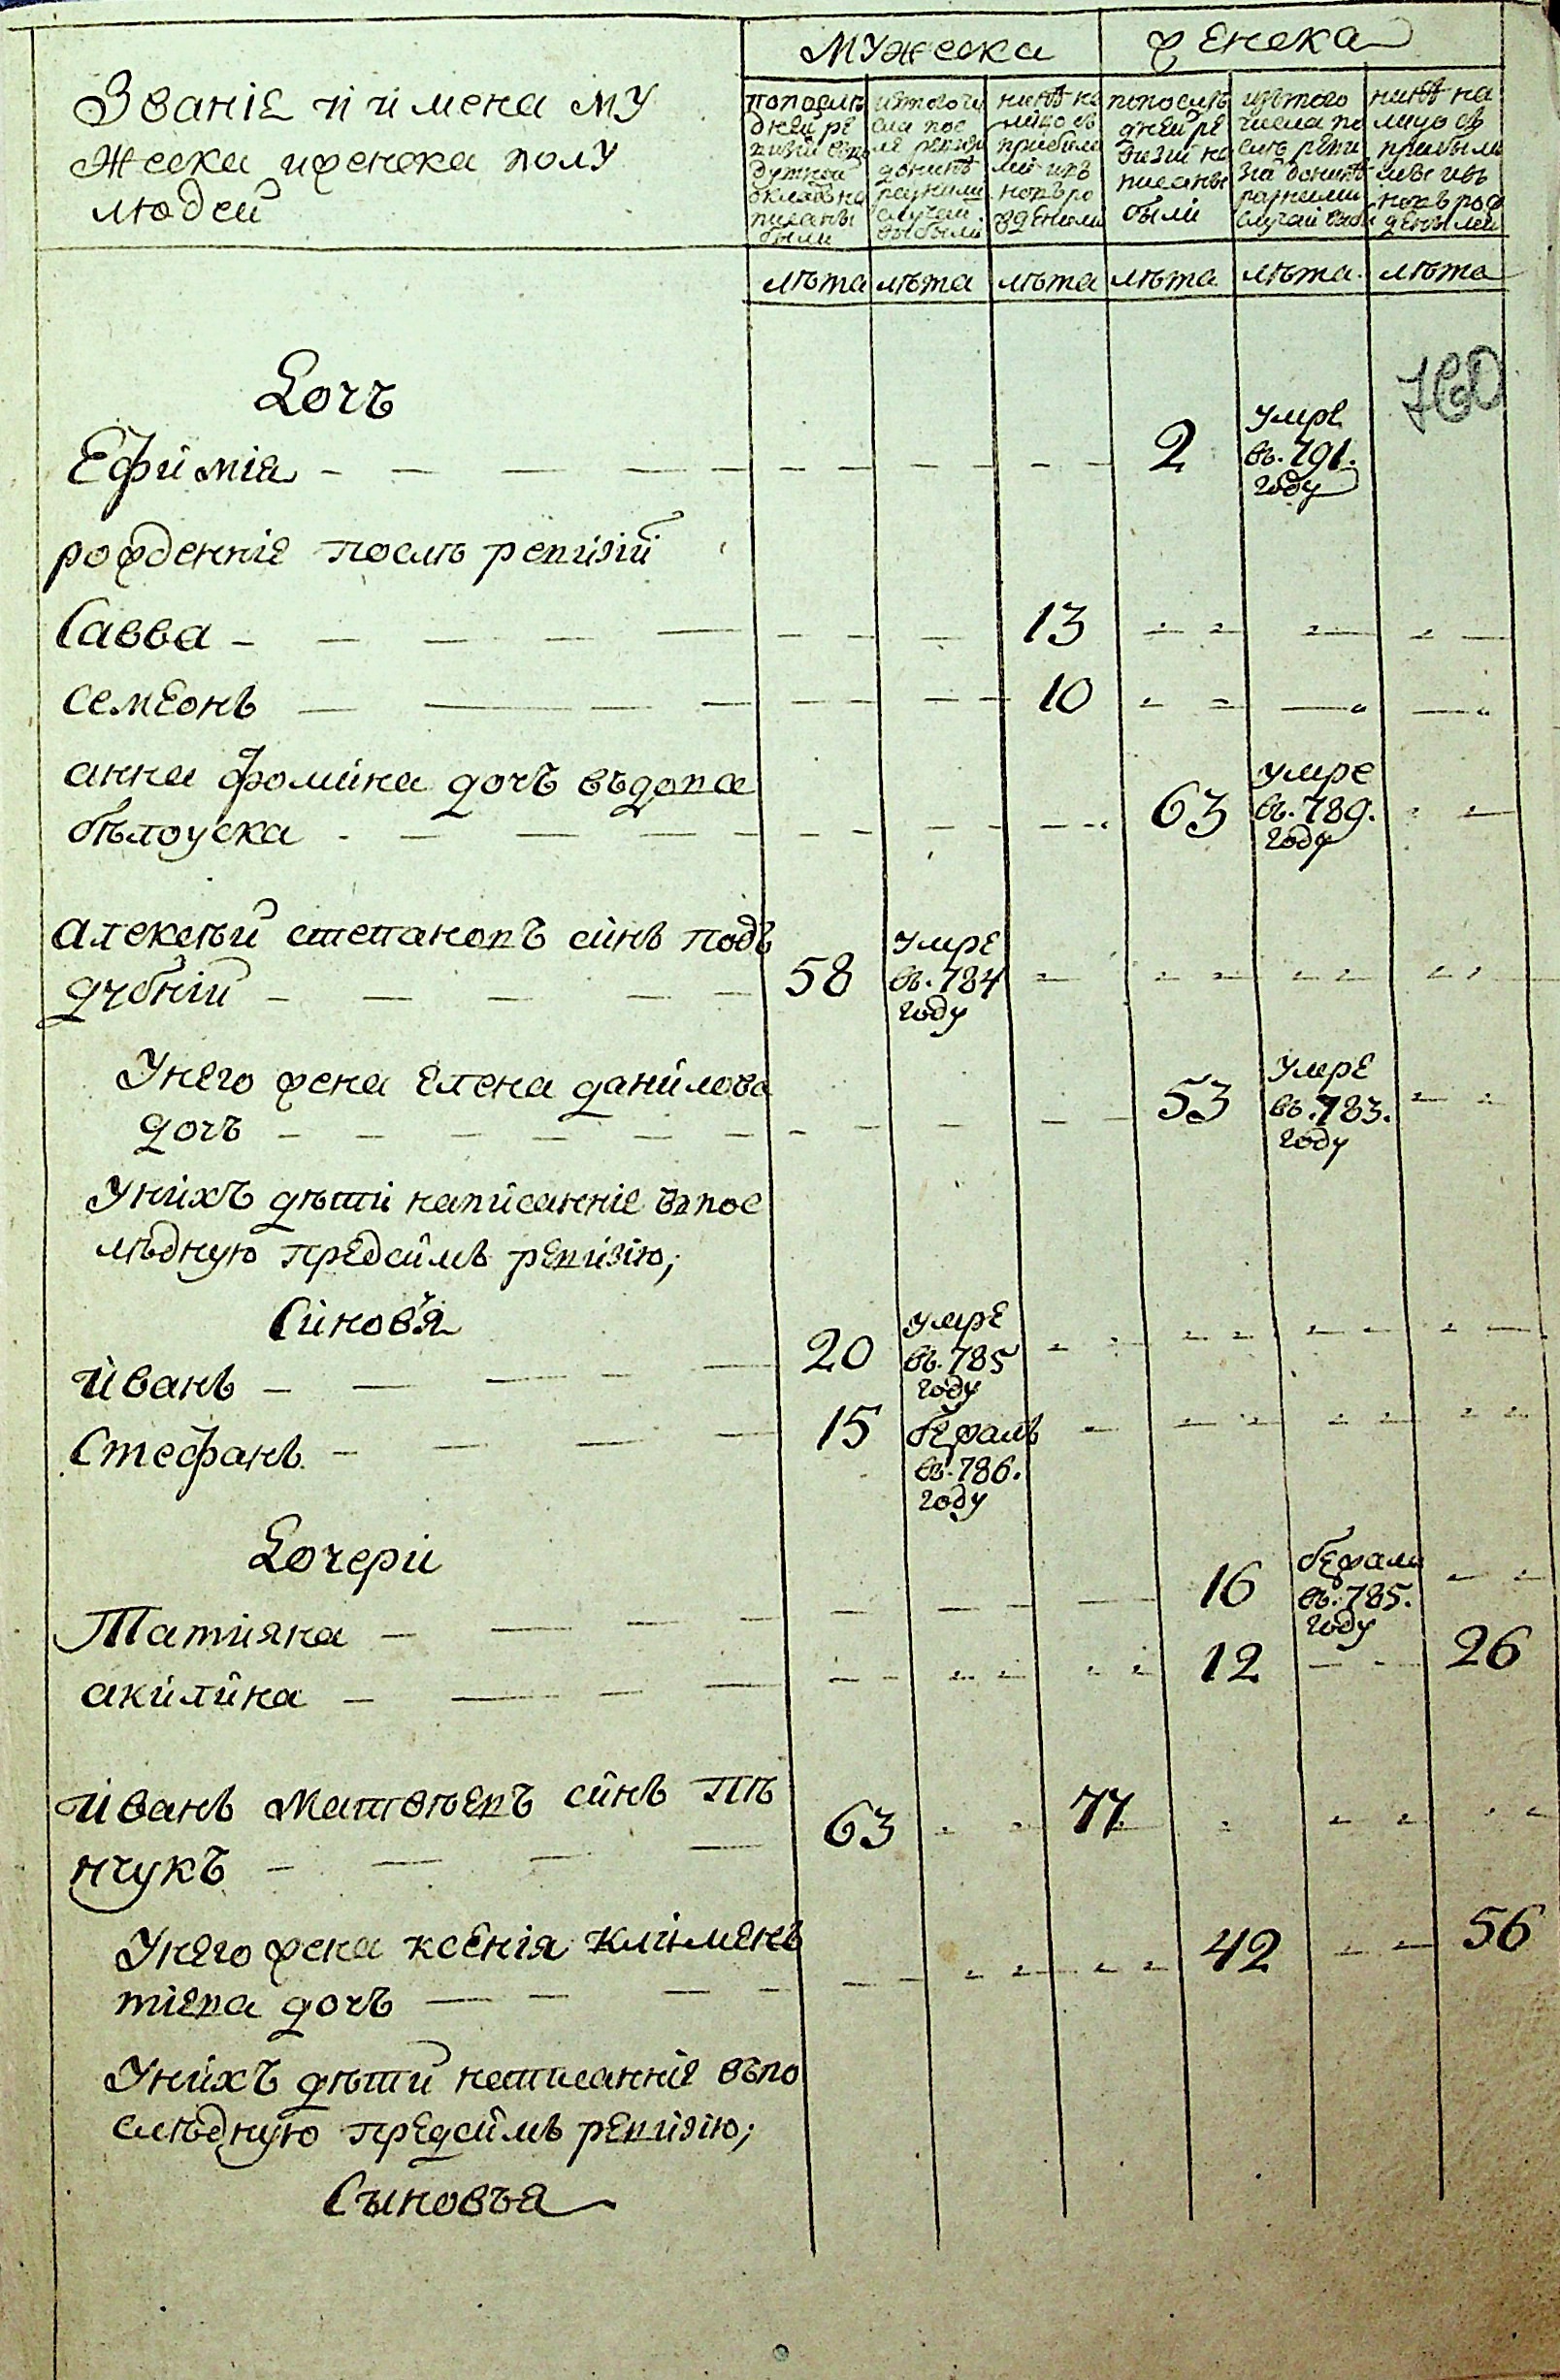 мужеска женска
Званіе и имена му
жеска и женска полу
людей
по послѣ
дней ре
визій въпо
душной
окладъ на
писаны
были
изътого чи
сла пос
ле ревизій
донинѣ
разними
случаи
выбыли
нинѣ на
лицо съ
прибыли
ми и въ
новъ ро
жденими
по послѣ
дней ре
визій на
писаны
были
изътого
числа по
слѣ реви
зій донинѣ
разними
случаи выб
нинѣ на
лицо съ
прибыли
ми и въ
новъ рож
денъми
лѣта лѣта лѣта лѣта лѣта лѣта
Дочъ
Ефимія - - - - 2 умре въ. 791. году
рожденніе послѣ ревизій
Савва - - - - 13 - - - -
семеонъ - - - - 10 - - - -
анна фомина дочъ въдова
бѣлоуска - - - - 63 умре въ. 789. году - -
алексѣй степановъ синъ подъ
дубній - - - - 58 умре въ. 784 году - - - -
Унего жена Елена данилова
дочъ - - - - 53 умре въ. 783. году - -
Унихъ дѣти написанніе впос
лѣдную предсимъ ревизію;
Синов'я
иванъ - - - - 20 умре въ. 785 году - - - -
Стефанъ - - - - 15 бежалъ въ. 786. году - - - -
Дочери
Татияна - - - - 16 бежала въ. 785. году - -
акилина - - - - 12 - - 26
иванъ матвѣевъ синъ пѣ
нчукъ - - - - 63 - - 77 - - - -
Унего жена ксенія климень
тіева дочъ - - - - 42 - - 56
Унихъ дѣти неписанніе въпо
слѣдную предсимъ ревизію;
Сыновъя